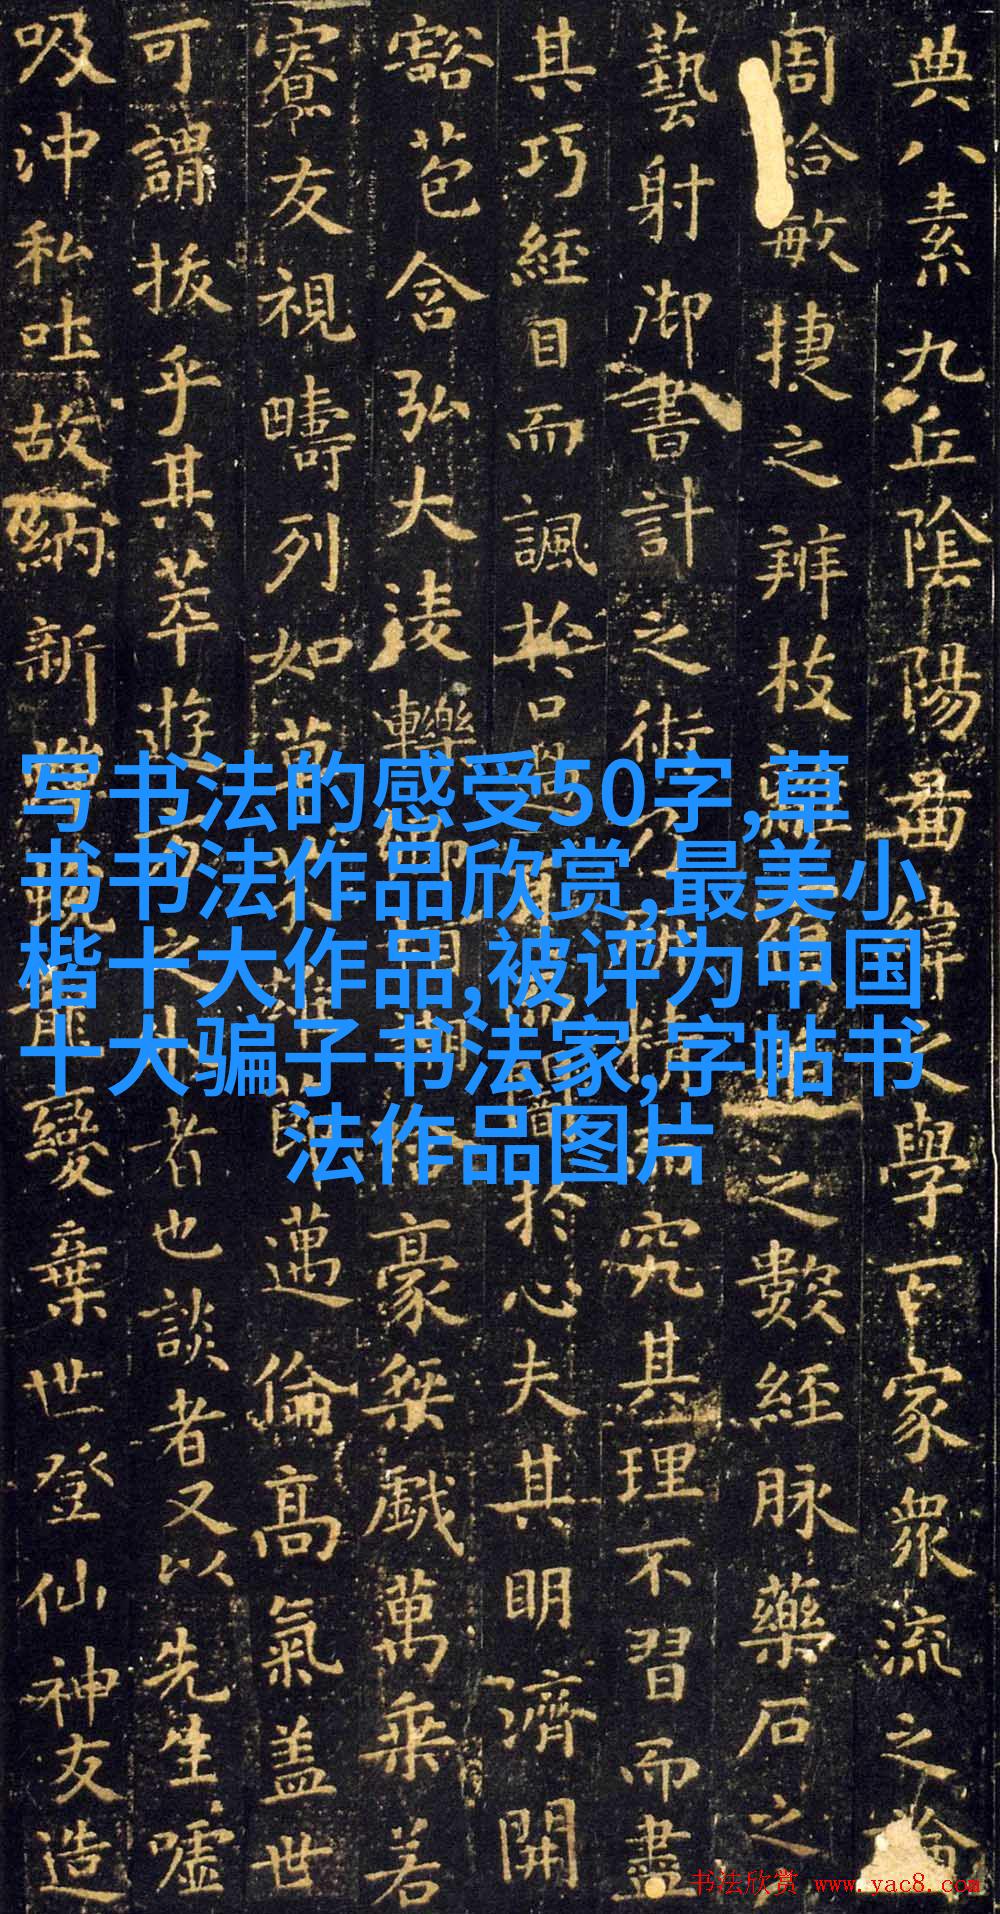 典八素九丘陰陽圖緯之學百家衆流之論
周給敏捷之辨枝之數經脉藥石之
藝射御書計之術究其理不習而盡
其巧經目而諷於口於心夫其明濟開
豁苞含弘大淩轢豪桀戲萬乘若
寮友視疇列如草邁倫高氣蓋世
可謂拔乎其萃遊方之外者也談者又以先生噓
吸沖私吐故納新變棄世登仙神友造
写书法的感受50字,草
书书法作品欣赏,最美小
楷十大作品,被评为中国
十大骗子书法家,字帖书
法作品图片
书法欣赏 www.yac8.com